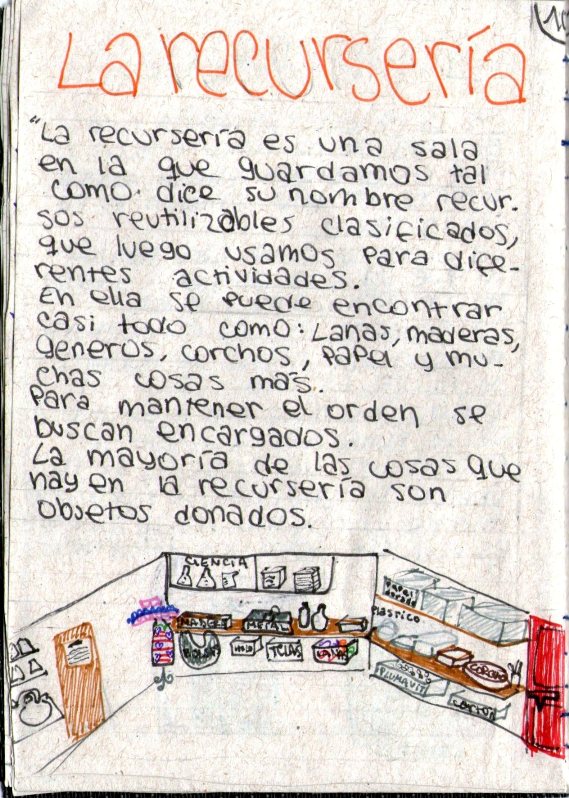 La recursería
"La recursería es una sala
en la que guardamos tal
como dice su nombre recur-
sos reutilizables clasificados,
que luego usamos para dife-
rentes actividades.
En ella se puede encontrar
casi todo como: Lanas, maderas,
generos, corchos, papel y mu-
chas cosas más.
Para mantener el orden se
buscan encargados.
La mayoría de las cosas que
hay en la recursería son
objetos donados.
CIENCIA
METAL
TELAS
LANAS
Papel
Plastico
CORCHO
PLUMAVIT
CARTON